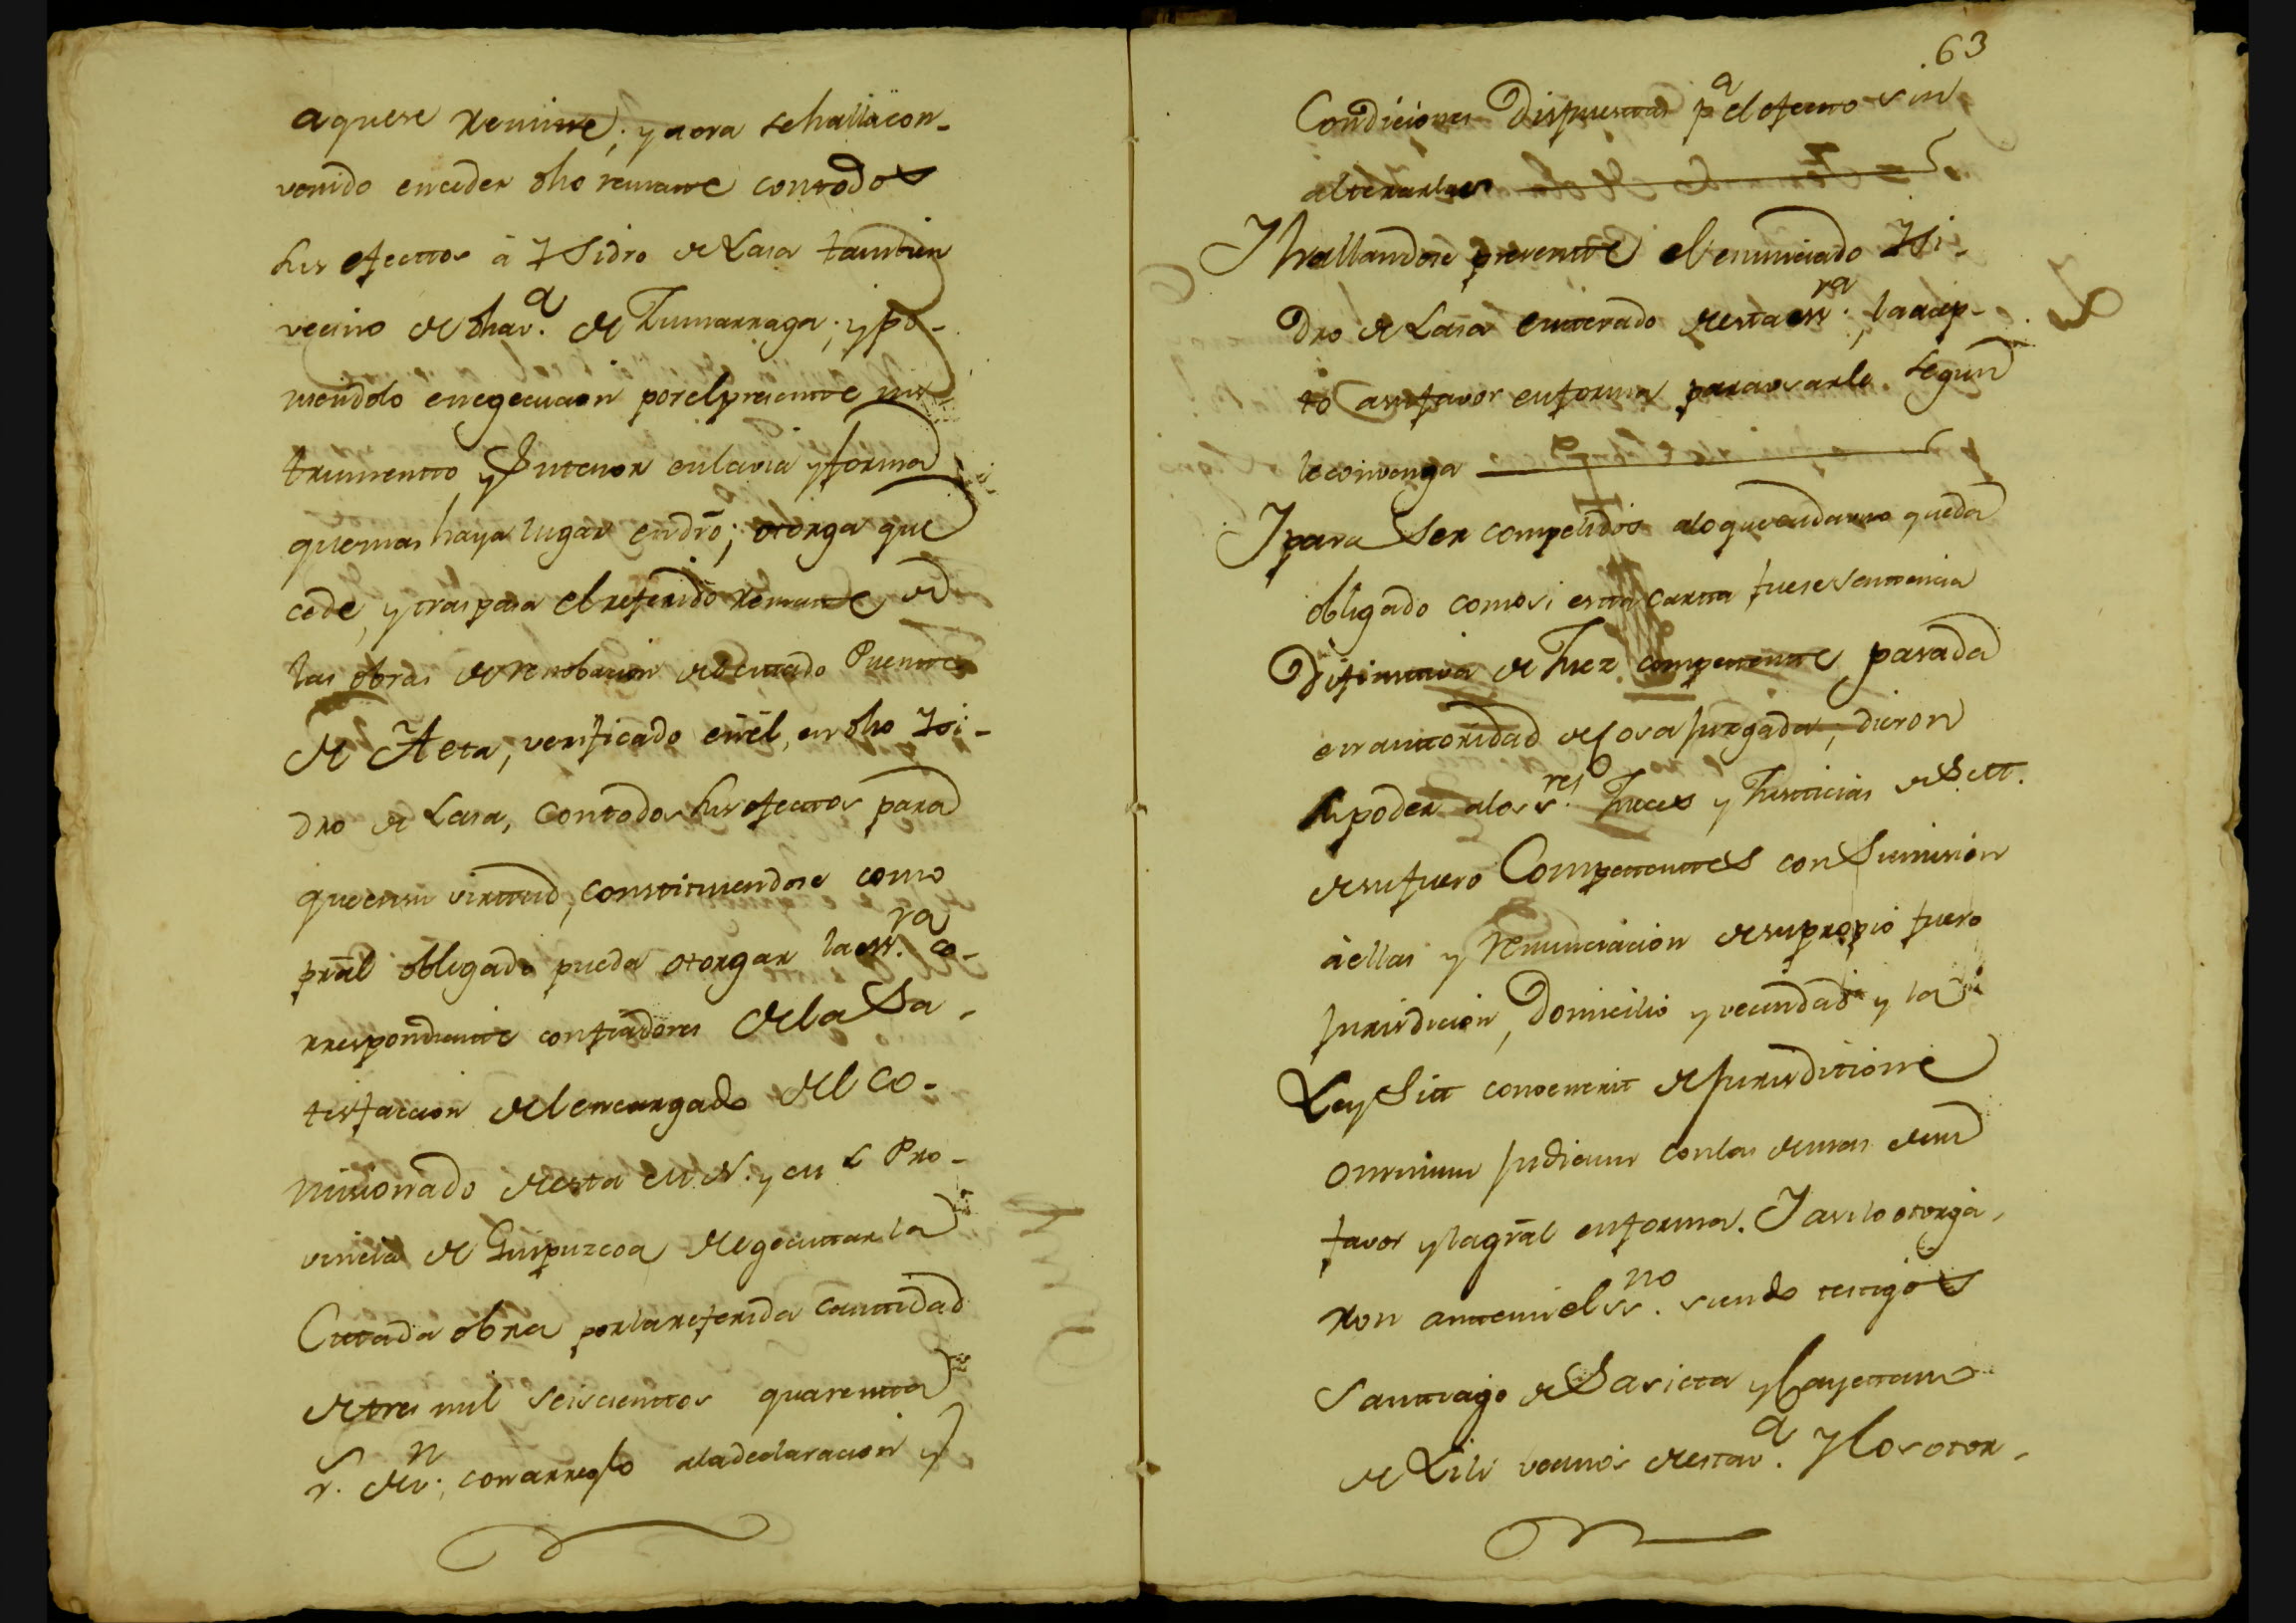 aquese remitte; y aora se halla con-
venido en ceder dho remate con todos
sus efecttos á Ysidro de Lasa tambien
vecino de dha v.a de Zumarraga; y po-
niendolo en egecucion por el presente ins-
trumentto y su tenor en la via y forma
que mas haya lugar en dro; otorga que
cede, y traspasa el referido remate de
las obras de renobacion del cittado Puente
de Aeta, verificado en él, en dho Ysi-
dro de Lasa, con todos sus efecttos para
que en su virttud, constituiendose como
pral obligado pueda otorgar la ess.ra co-
rrespondiente con fiadores de la Sa-
tisfaccion del encargado del Co-
misionado de esta M. N. y M. L Pro-
vincia de Guipuzcoa de egecuttar la
Cittada obra por la referida canttidad
de tres mil seiscienttos quarentta
r.s de v.n; con arreglo a la declaracion y
63
Condiciones Dispuesttas p.a el efectto sin
alterarlas
Y hallandose presente el enunciado Ysi-
dro de Lasa entterado de esta ess.ra, la acep-
tó a su favor en forma para usarla segun
le convenga
Y para ser compelidos a lo que cada uno queda
obligado como si estta cartta fuese senttencia
Difinittiva de Juez competentte pasada
en auttoridad de cosa Juzgada, dieron
su poder a los s.res Jueces y Justticias de S. M.
de su fuero Competenttes con Sumision
á ellas y renunciacion de su propio fuero
Jurisdicion, Domicilio y vecindad y la
Ley Sitt convenerit de Jurisditione
omnium Judicum con las demas de su
favor y la gral en forma. Y asi lo otorga-
ron antte mi el ss.no siendo testigos
Santtiago de Sarietta y Cayettano
de Lili vecinos de esta v.a Y los otor-